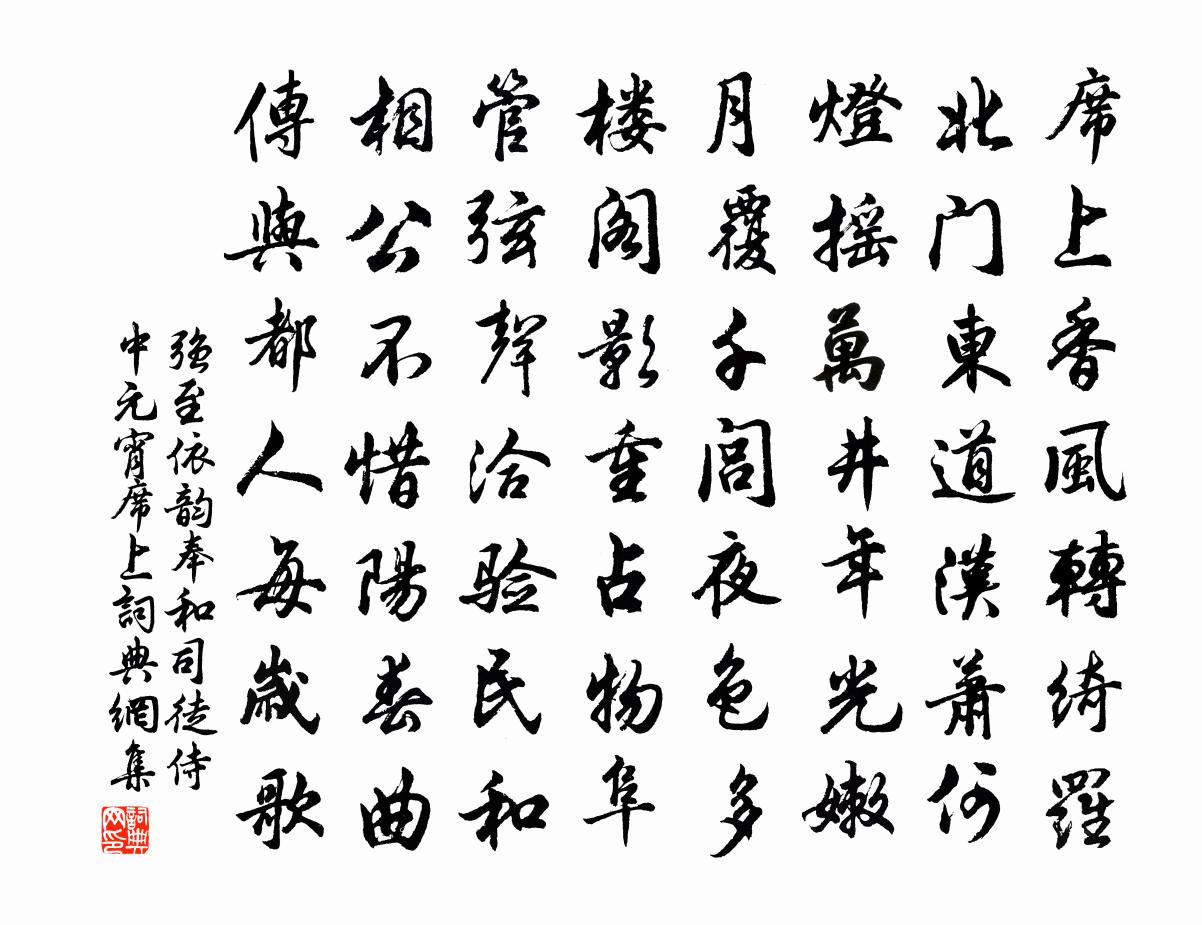 席上香風轉綺羅
北门東道漢萧何
燈摇萬井年光嫩
月覆千闾夜色多
楼阁影重占物阜
管弦聲洽验民和
相公不惜陽春曲
傳與都人每歲歌
强至依韵奉和司徒侍
中元宵席上詞典網集
詞典网印